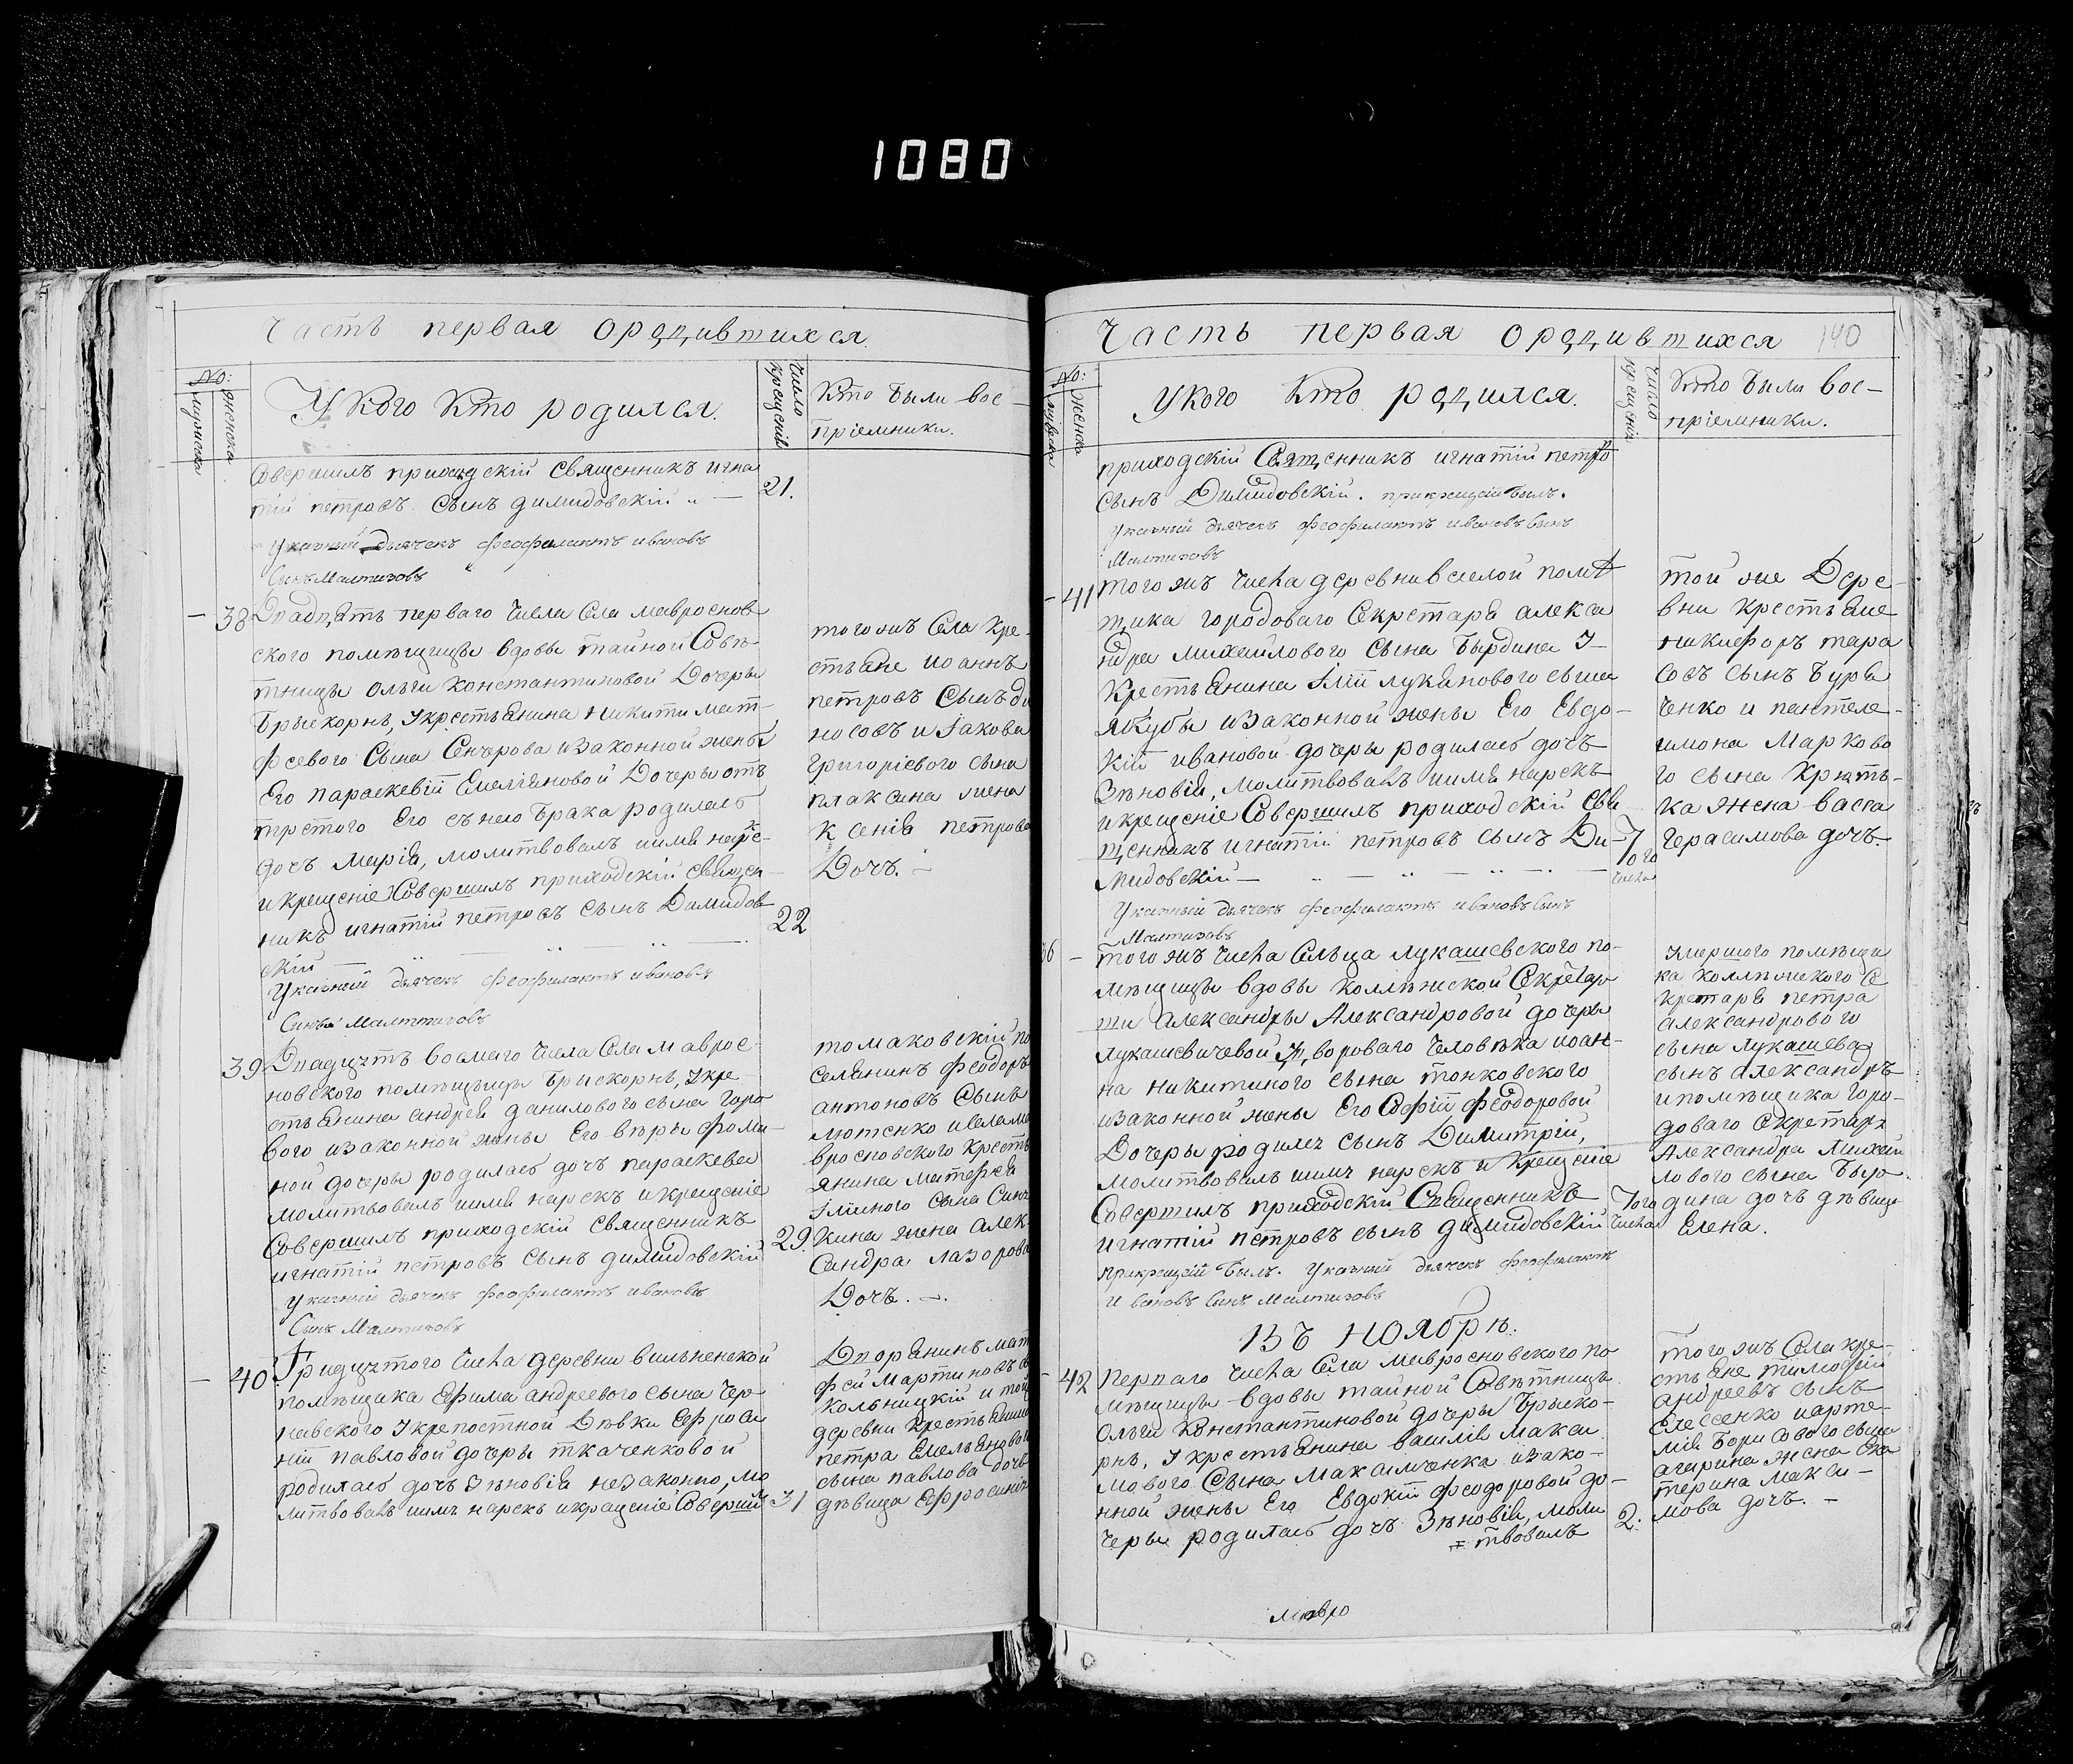 1080
Часть первая ородившихся
No:
мужеска
женска
У кого кто родился.
Число крещенія
Кто были вос-
пріемники.
Совершилъ приходскій Священникъ игна
тій петровъ сынъ димидовскій 21.
Указный дьячекъ феофилактъ ивановъ
Синъ Малтизовъ
38 Двадцять перваго числа села мавроснов
ского помѣщицы вдовы тайной Совѣ-
тницы ольги константиновой Дочеры
Брыскорнъ, Укрестьянина никиты мат-
феевого Сына Сенчерова изаконной жены
Его параскевіи Емеліяновой Дочеры отъ
третого его съ нею брака родиласъ
дочъ Марія, молитвовалъ имя нарѣс-
и крещеніе Совершилъ приходскій священ-
никъ игнатій петровъ сынъ Димидов
скій
22
Указный дьячекъ феофилактъ ивановъ
Синъ Малтизовъ
того жъ Села кре-
стьяне иоаннъ
петровъ Сынъ
носовъ и іакова
григоріевого сына
плаксина жена
ксенія петрова
Дочъ.
39 Двадцять восмаго числа Села маврос-
новского помѣщицы Брискорнъ, Укре-
стьянина андрея данилового сына горо
вого изаконной жены его вѣры фоми-
ной дочеры родиласъ дочъ параскевея
молитвовалъ имя нарекъ и крещеніе
Совершилъ приходскій священникъ
игнатій петровъ сынъ димидовскій
29.
Указный дьячекъ феофилактъ ивановъ
Синъ Малтизовъ
томаковскій по
селянинъ феодоръ
антоновъ Сынъ
лютенко и села ма
вросновского кресть
янина матфея
іліиного сына Син
кина жена алек
сандра лазорова
Дочъ.
40 Тридцятого числа деревни вильненской
помѣщика Ефима андреевого сына чер
невского Укрепостной Дѣвки Ефроси
ніи павловой дочеры ткаченковой
родиласъ дочъ Зѣновія незаконно, мо
литвовалъ имя нарекъ и крещеніе Соверши
31
Дворянинъ мат
фей Мартиновъ
колницкій и той
деревни крестьянин
петра Емельянового
сына павлова дочъ
дѣвица Ефросинія
Часть первая ородившихся 140
No:
мужеска
женска
У кого кто родился.
Число крещенія
Кто были вос-
пріемники.
приходскій Священникъ игнатій петро
сынъ Димидовскій. при крещеніи былъ.
Указный дьячекъ феофилактъ ивановъ Сынъ
Малтизовъ
41 того жъ числа деревни веселой помѣ
щика городоваго Секретаря алекса
ндра михайлового сына Бырдина У
крестьянина Іліи лукянового сына
Якубы изаконной жены Его Евдо-
кіи ивановой дочеры родиласъ дочъ
Зѣновія, молитвовалъ имя нарекъ
и крещеніе Совершилъ приходскій Свя
щенникъ игнатій петровъ сынъ Ди-
мидовскій
7ого
числа
Указный дьячекъ феофилактъ ивановъ Сынъ
Малтизовъ
той же Дере-
вни крестьяне
никифоръ тара
совъ сынъ Буря
ченко и пантеле-
имона Марково
го сына
ка жена васса
Герасимова дочъ.
36 того жъ числа Сельца лукашевского по-
мѣщицы вдовы коллежской Секретар
ши александры Александровой дочеры
лукашевичевой У дворового человѣка иоан-
на никитиного сына тонковского
изаконной жены Его Софіи феодоровой
Дочеры родилсъ сынъ Димитрій,
молитвовалъ имя нарекъ и крещеніе
Совершилъ приходскій Священникъ
игнатій петровъ сынъ димидовскій
7ого
числа
при крещеніи былъ. Указный дьячекъ феофилактъ
Ивановъ Синъ Малтизовъ
Умершого помѣщи
ка коллежского Се
кретаря петра
александрового
сына лукашева
сынъ александръ
и помѣщика горо-
доваго Секретаря
Александра Михай
лового сына Быр-
дина дочъ дѣвица
Елена.
Въ Ноябрѣ.
42 Перваго числа Села мавросновского по
мѣщицы вдовы тайной Совѣтницы
Ольги Константиновой дочеры Брыско-
рнъ, Укрестьянина василія макси
мового Сына Максимченка изако-
нной жены Его Евдокіи феодоровой до-
черы родиласъ дочъ Зѣновія, моли
твовалъ
2.
того жъ Села кре-
стьяне тимофій
андреевъ сынъ
Елесенко и арте-
мія борисового сына
жена Ека
терина макси-
мова дочъ.
мавро